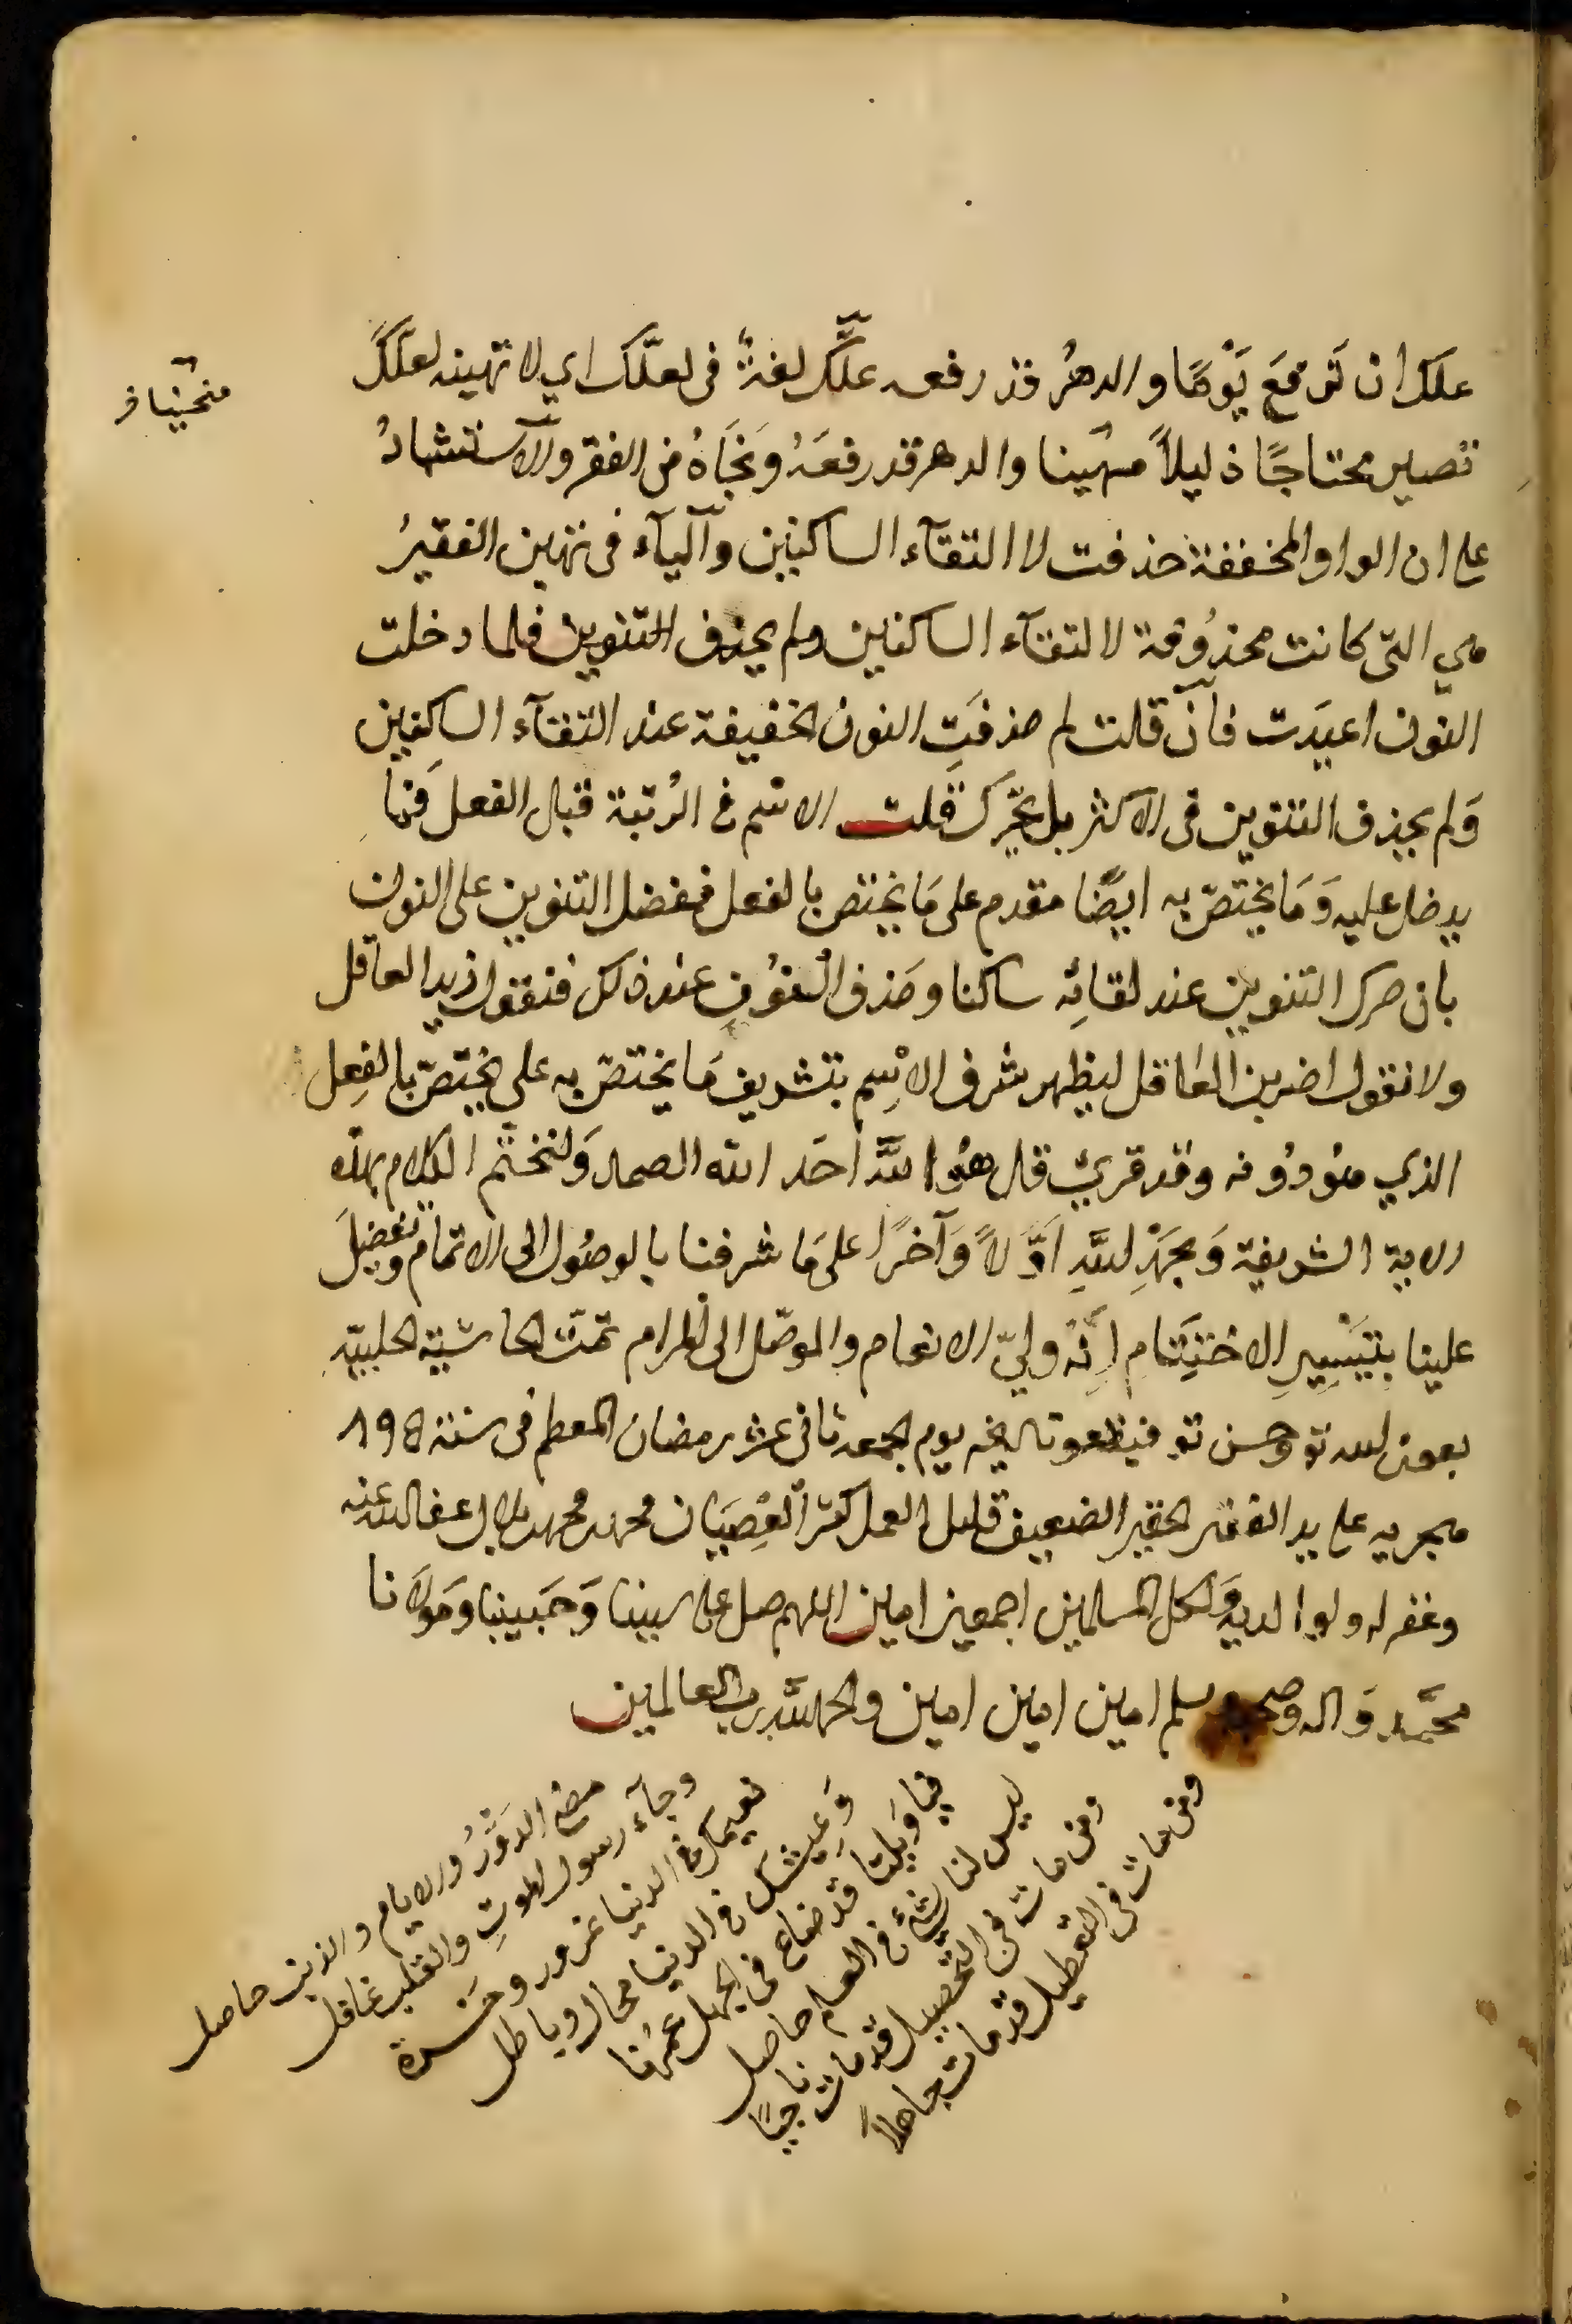 علك ان تركع يَوْمًا والدهرُ قد رفعه علَّكَ لغةٌ فى لعلّك اي لا تهينه لعلكَ
تصير محتاجًا ذليلاً مهينا والدهر قد رفعَهُ ونَجَاهُ من الفقر والاستشهادُ
على ان الواو المخففة حذفت لا التقآء الساكنين واليآء فى تهين الفقيرُ
هي التى كانت محذُوفة لا لتقآء الساكنين ولم يحذف التنوين فلما دخلت
النون اعيدَت فان قلت لم حذفَتِ النون الخفيفة عند التقآء الساكنين
وَلم يحذف التنوين فى الاكثر بل يحَّركَ قلت الاسم فى الرُتبة قبل الفعل فما
يدخل عليه وَمَا يختصّ به ايضًا مقدم على مَا يختص بالفعل فيفضل التنوين على النون
بان حرك التنوين عند لقائِه ساكنا وحَذف النُونِ عند ذلك فنقول زيدا لعاقل
ولا نقول اضربن العاقل ليظهر شرف الاِسْمِ بتشريف مَا يختصّ به على يختصّ بالفِعل
الذي هُو دُونه وقد قرئ قل هُو اللَّه احَد الله الصمد وَلنختم الكلام بهذه
الاية الشريفة وَبحمْدِ للَّهِ اوَّلاً وَآخرًا على مَا شرفنا بالوصُول الى الاتمام وتفضلَ
علينا بتيَسْيرِ الاختِتَام اِنّهُ وليّ الانعام والموصّل الى المرام تمت الحاشية الحلبيّةِ
بعون لله تع وحسن توفيقه وتاريخه يوم الجمعه ثانى عشر رمضان المعظم فى سنة ٩٨٥
هجريه على يد الفقير الحقير الضعيف قليل العمل كثير العِصيَان محمد محمد بلال عفا الله عنه
وغفر له ولوالديه وَلكل المسلمين اجمعين امين اللهم صل على سيدنا وَحَبيبنا وَمَولَانا
محمَّد وَاله وصحبه وسلم امين امين امين والحمد للَّه رب العالمين
مضى الدَهْرُ والايام والذنب حاصل
وجآء رسول الموتِ والقلب غافل
نعيمك فى الدنيا غرور وحَسْرة
وَعيشك فى الدنيا محال وباطل
فيا وَيلتا قد ضاع فى الجهل عمرُنا
ليس لنا شئ فى العلم حاصل
ومن مات فى التحصيل قد مات ناجيًا
ومن مات فى التعطيل قد مات جاهلاً